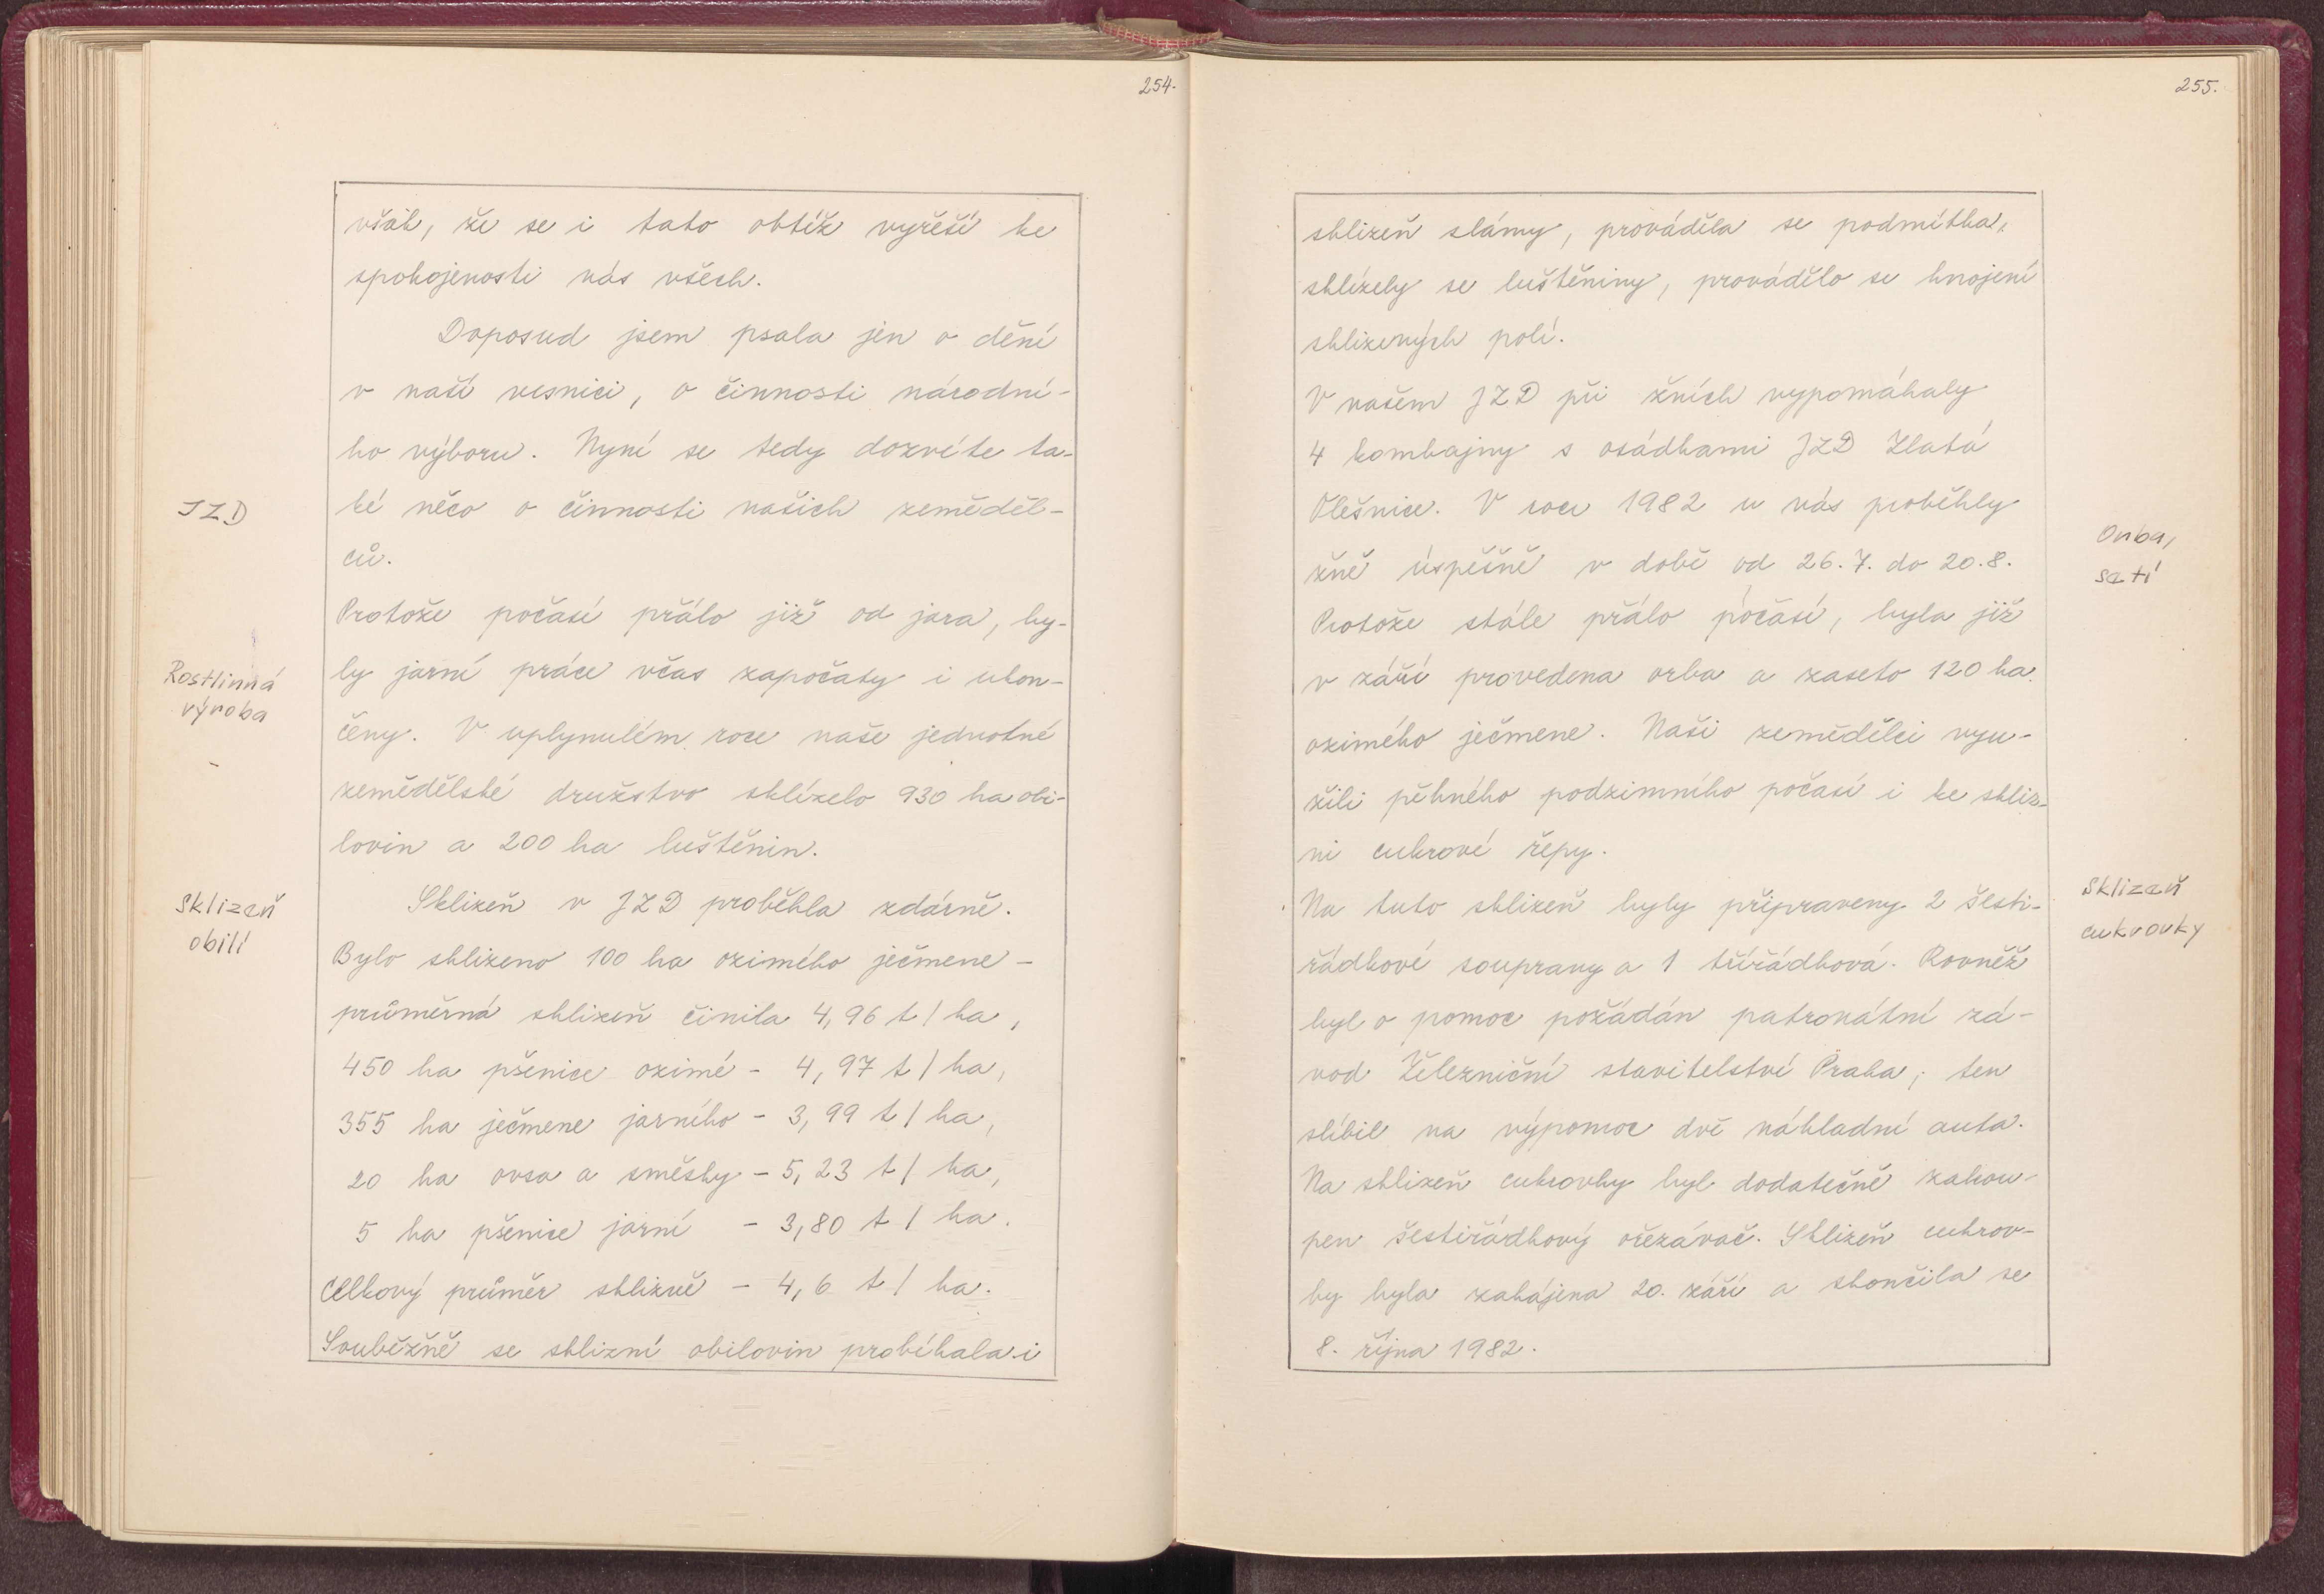 254.
však, že se i tato obtíž vyřeší ke
spokojenosti nás všech.
Doposud jsem psala jen o dění
v naší vesnici, o činnosti národní-
ho výboru. Nyní se tedy dozvíte ta-
JZD
ké něco o činnosti našich zeměděl-
ců.
Protože počasí přálo již od jara, by-
Rostlinná
výroba
ly jarní práce včas započaty i ukon-
čeny. V uplynulém roce naše jednotné
zemědělské družstvo sklízelo 930 ha obi-
lovin a 200 ha luštěnin.
Sklizeň
obilí
Sklizeň v JZD proběhla zdárně.
Bylo sklizeno 100 ha ozimého ječmene -
průměrná sklizeň činila 4,96 t/ha,
450 ha pšenice ozimé - 4,97 t/ha,
355 ha ječmene jarního - 3,99 t/ha,
20 ha ovsa a směsky - 5,23 t/ha,
5 ha pšenice jarní - 3,80 t/ha.
Celkový průměr sklizně - 4,6 t/ha.
Souběžně se sklizní obilovin probíhala i
255.
sklizeň slámy, prováděla se podmítka,
sklízely se luštěniny, provádělo se hnojení
sklizených polí.
V našem JZD při žních vypomáhaly
4 kombajny s osádkami JZD Zlatá
Olešnice. V roce 1982 u nás proběhly
Orba,
setí
žně úspěšně v době od 26.7. do 20.8.
Protože stále přálo počasí, byla již
v září provedena orba a zaseto 120 ha
ozimého ječmene. Naši zemědělci vyu-
žili pěkného podzimního počasí i ke skliz-
ni cukrové řepy.
Sklizeň
cukrovky
Na tuto sklizeň byly připraveny 2 šesti-
řádkové soupravy a 1 třířádková. Rovněž
byl o pomoc požádán patronátní zá-
vod Železniční stavitelství Praha, ten
slíbil na výpomoc dvě nákladní auta.
Na sklizeň cukrovky byl dodatečně zakou-
pen šestiřádkový ořezávač. Sklizeň cukrov-
ky byla zahájena 20. září a skončila se
8. října 1982.